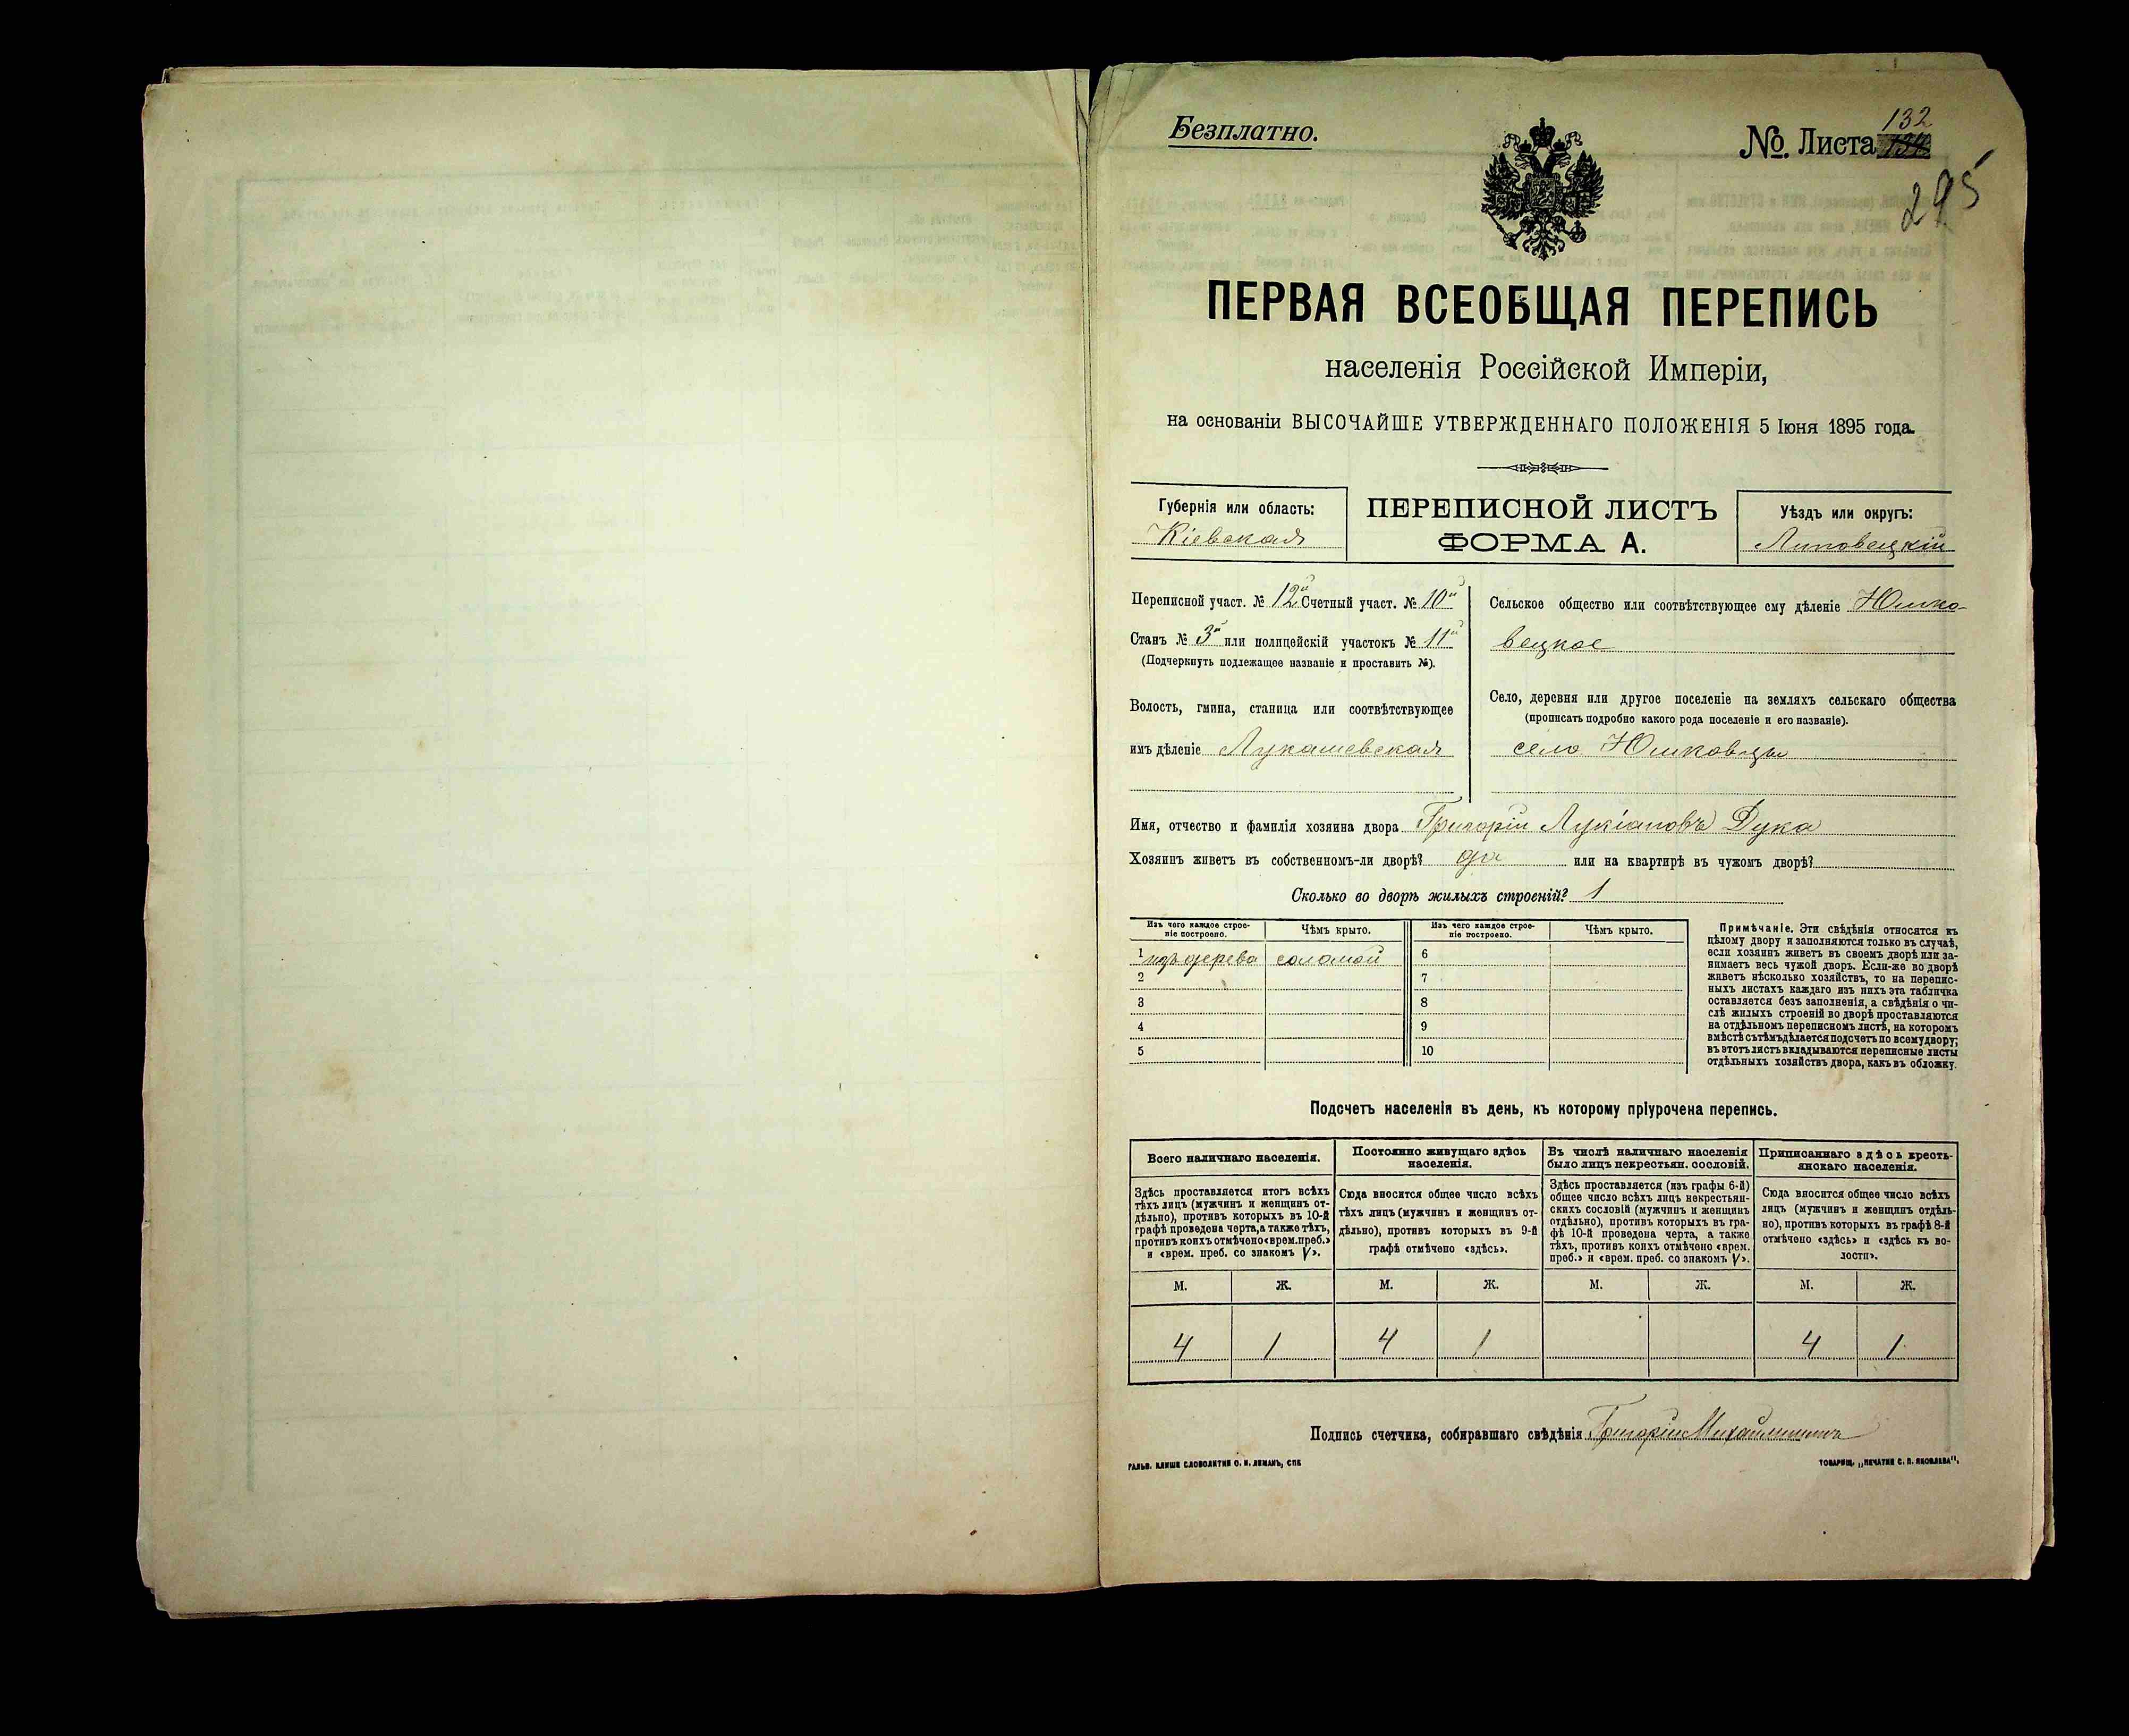 Безплатно.
№. Листа 132
295
ПЕРВАЯ ВСЕОБЩАЯ ПЕРЕПИСЬ
населенія Россійской Имперіи,
на основаніи ВЫСОЧАЙШЕ УТВЕРЖДЕННАГО ПОЛОЖЕНІЯ 5 Іюня 1895 года.
Губернія или область:
Кіевская
ПЕРЕПИСНОЙ ЛИСТЪ
ФОРМА А.
Уѣздъ или округъ:
Липовецкій
Переписной участ. № 12й Счетный участ. № 10й
Станъ № 3й или полицейскій участокъ № 11й
(Подчеркнуть подлежащее названіе и проставить №).
Волость, гмина, станица или соотвѣтствующее
имъ дѣленіе Лукашевская
Сельское общество или соотвѣтствующее ему дѣленіе Юшко-
вецкое
Село, деревня или другое поселеніе на земляхъ сельскаго общества
(прописать подробно какого рода поселеніе и его названіе).
село Юшковцы
Имя, отчество и фамилія хозяина двора Григорій Лукіановъ Дука
Хозяинъ живетъ въ собственномъ-ли дворѣ? да или на квартирѣ въ чужомъ дворѣ?
Сколько во дворѣ жилыхъ строеній? 1
Изъ чего каждое строе-
ніе построено.
Чѣмъ крыто.
Изъ чего каждое строе-
ніе построено.
Чѣмъ крыто.
1 изъ дерева соломой 6
2 7
3 8
4 9
5 10
Примѣчаніе. Эти свѣдѣнія относятся къ
цѣлому двору и заполняются только въ случаѣ,
если хозяинъ живетъ въ своемъ дворѣ или за-
нимаетъ весь чужой дворъ. Если-же во дворѣ
живетъ нѣсколько хозяйствъ, то на перепис-
ныхъ листахъ каждаго изъ нихъ эта табличка
оставляется безъ заполненія, а свѣдѣнія о чи-
слѣ жилыхъ строеній во дворѣ проставляются
на отдѣльномъ переписномъ листѣ, на которомъ
вмѣстѣ съ тѣмъ дѣлается подсчетъ по всему двору;
въ этотъ листъ вкладываются переписные листы
отдѣльныхъ хозяйствъ двора, какъ въ обложку.
Подсчетъ населенія въ день, къ которому пріурочена перепись.
Всего наличнаго населенія.
Здѣсь проставляется итогъ всѣхъ
тѣхъ лицъ (мужчинъ и женщинъ от-
дѣльно), противъ которыхъ въ 10-й
графѣ проведена черта, а также тѣхъ,
противъ коихъ отмѣчено «врем. преб.»
и «врем. преб. со знакомъ V».
Постоянно живущаго здѣсь
населенія.
Сюда вносится общее число всѣхъ
тѣхъ лицъ (мужчинъ и женщинъ от-
дѣльно), противъ которыхъ въ 9-й
графѣ отмѣчено «здѣсь».
Въ числѣ наличнаго населенія
было лицъ некрестьян. сословій.
Здѣсь проставляется (изъ графы 6-й)
общее число всѣхъ лицъ некрестьян-
скихъ сословій (мужчинъ и женщинъ
отдѣльно), противъ которыхъ въ гра-
фѣ 10-й проведена черта, а также
тѣхъ, противъ коихъ отмѣчено «врем.
преб.» и «врем. преб. со знакомъ V».
Приписаннаго здѣсь кресть-
янскаго населенія.
Сюда вносится общее число всѣхъ
лицъ (мужчинъ и женщинъ отдѣль-
но), противъ которыхъ въ графѣ 8-й
отмѣчено «здѣсь» и «здѣсь къ во-
лости».
М. Ж. М. Ж. М. Ж. М. Ж.
4 1 4 1 4 1
Подпись счетчика, собиравшаго свѣдѣнія Григорій
ГАЛЬВ. КЛИШЕ СЛОВОЛИТНИ О. И. ЛЕМАНЪ, СПБ
ТОВАРИЩ. „ПЕЧАТНЯ С. П. ЯКОВЛЕВА".